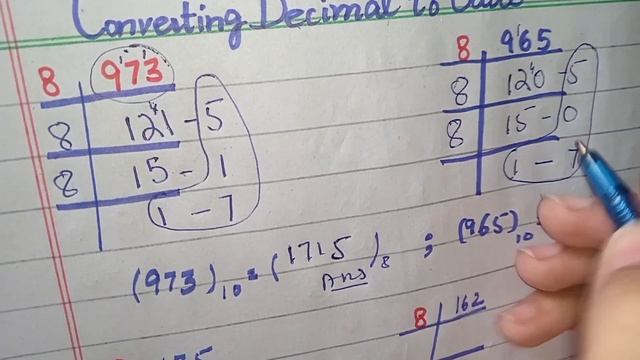 Converting Decimal to
8 973
8 121 - 5
8 15 - 1
1 - 7
8 965
8 120 - 5
8 15 - 0
1 - 7
(973)10 = (1715)8 ; (965)10
Ans
8 162